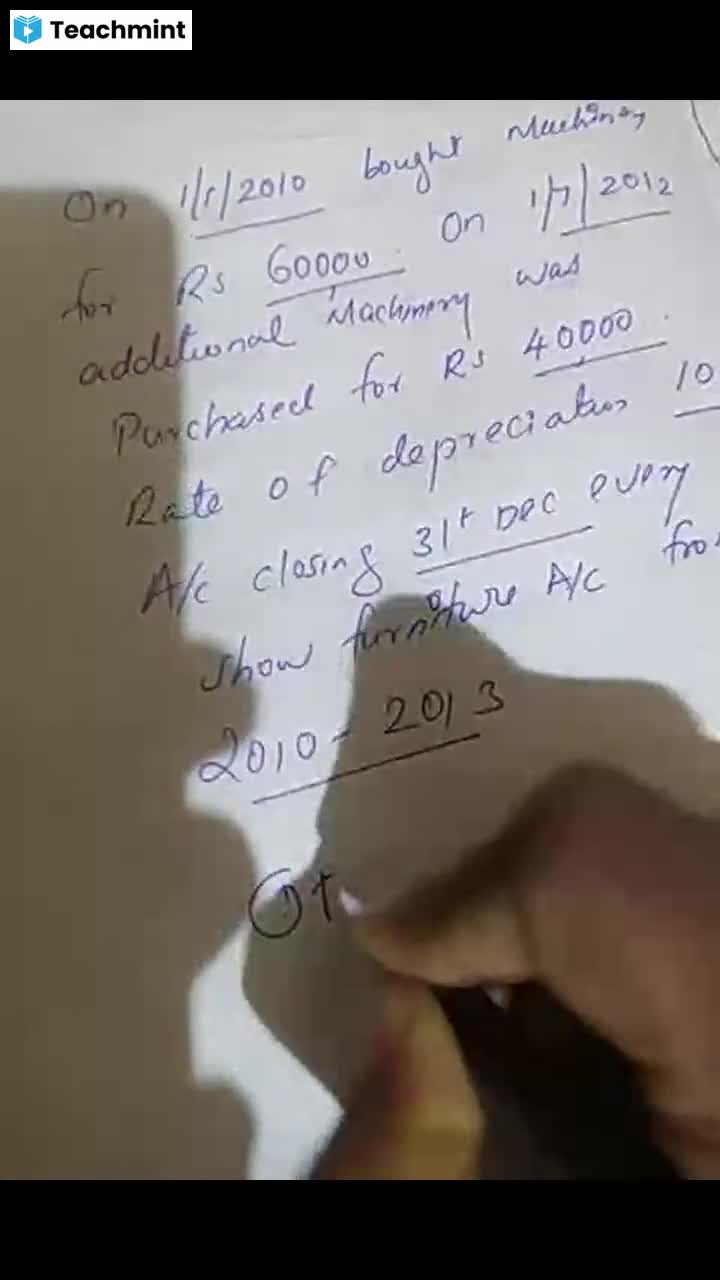 Teachmint
On 1/1/2010 bought Machinery
for Rs 60000. On 1/7/2012
additional Machinery was
Purchased for Rs 40000.
Rate of depreciation 10
A/c closing 31st Dec every
show furniture A/c from
2010 - 2013